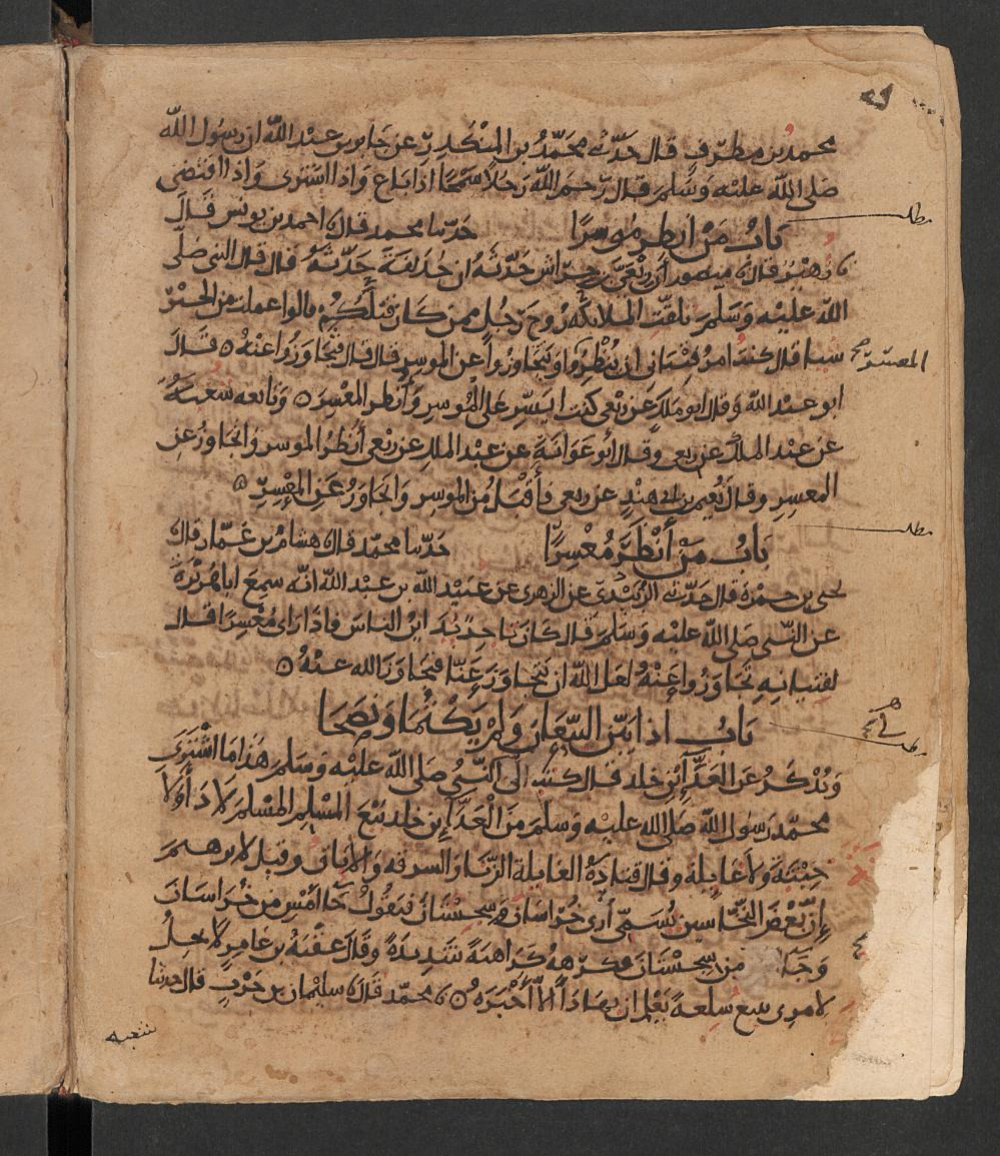 محمد بن مطرف قال حدثني محمد بن المنكدر عن جابر بن عبد الله ان رسول الله
صلى الله عليه وسلم قال رحم الله رجلا سمحا اذا باع واذا اشترى واذا اقتضى
باب من انظر موسرا حدثنا محمد قال نا احمد بن يونس قال
نا زهير قال نا منصور ان ربعي بن حراش حدثه ان حذيفة حدثه قال قال النبي صلى
الله عليه وسلم تلقت الملائكة روح رجل ممن كان قبلكم قالوا اعملت من الخير
شيا قال كنت امر فتياني ان ينظروا ويتجاوزوا عن الموسر قال قال فتجاوزوا عنه ٥ قال
المعسر
ابو عبد الله وقال ابو ملك عن ربعي كنت ايسر على الموسر وأنظر المعسر ٥ وتابعه شعبة
عن عبد الملك عن ربعي وقال ابو عوانة عن عبد الملك عن ربعي أنظر الموسر واتجاوز عن
المعسر وقال نعيم بن ابي هند عن ربعي فأقبل من الموسر واتجاوز عن المعسر ٥
باب من أنظر معسرا حدثنا محمد قال نا هشام بن عمار قال نا
يحيى بن حمزة قال حدثني الزبيدي عن الزهري عن عبيد الله بن عبد الله انه سمع ابا هريرة
عن النبي صلى الله عليه وسلم قال كان تاجر يداين الناس فاذا راى معسرا قال
لفتيانه تجاوزوا عنه لعل الله ان يتجاوز عنا فتجاوز الله عنه ٥
باب اذا بين البيعان ولم يكتما ونصحا
ويذكر عن العدا بن خلد قال كتب الي النبي صلى الله عليه وسلم هذا ما اشترى
محمد رسول الله صلى الله عليه وسلم من العدا بن خلد بيع المسلم المسلم لا دا ولا
خبثة ولا غايلة وقال قتادة الغايلة الزنا والسرقه والاباق وقيل لابرهيم
إن بعض النخاسين يسمي أري خراسان وسجستان فيقول جا امس من خراسان
وجا من سجستان فكرهه كراهة شديدة وقال عقبة بن عامر لا يحل
لامرى يبيع سلعة يعلم ان بها دا الا أخبره ٥ نا محمد قال نا سليمان بن حرب قال حدثنا
شعبه